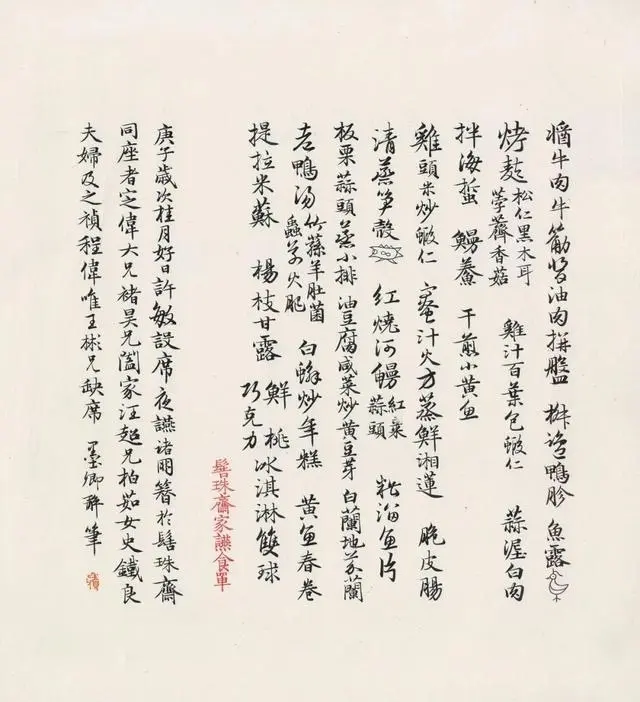 醬牛肉牛筋醬油肉拼盤 鴨胗 魚露
烤麩 松仁黑木耳 荸薺香菇 雞汁百葉包蝦仁 蒜泥白肉
拌海蜇 鰻鯗 干煎小黃魚
雞頭米炒蝦仁 蜜汁火方蒸鮮湘蓮 脆皮腸
清蒸笋殼 紅燒河鰻 紅棗 蒜頭 糟溜魚片
板栗蒜頭蒸小排 油豆腐咸菜炒黃豆芽 白蘭地芥蘭
老鴨湯 竹蓀羊肚菌 蟲草火腿 白蟹炒年糕 黃魚春卷
提拉米蘇 楊枝甘露 鮮桃 巧克力 冰淇淋雙球
髻珠齋家讌食單
庚子歲次桂月好日許敏設席夜讌諸朋簪於髻珠齋
同座者定偉大兄褚昊兄闔家汪超兄柏茹女史鐵良
夫婦及之禎程偉唯王彬兄缺席 墨卿醉筆